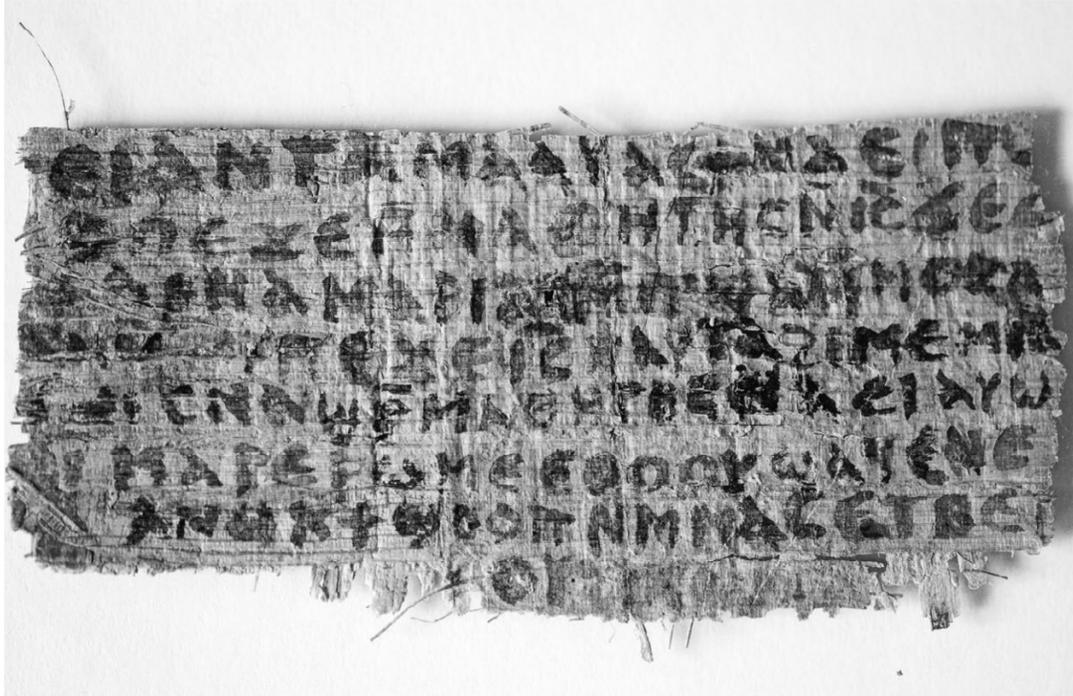 ⲉⲓ ⲁⲛ ⲧⲁⲙⲁⲁⲩ ⲁⲥϯ ⲛⲁⲉⲓ ⲡⲱ
ⲡⲉϫⲉ ⲙⲙⲁⲑⲏⲧⲏⲥ ⲛⲓ̅ⲥ̅ ϫⲉ ⲥ
ⲁⲣⲛⲁ ⲙⲁⲣⲓⲁⲙ
ⲡⲉϫⲉ ⲓ̅ⲥ̅ ⲛⲁⲩ ⲧⲁϩⲓⲙⲉ ⲙⲛ
ⲥⲛⲁϣⲣⲙⲁⲑⲏⲧⲏⲥ ⲛⲁⲉⲓ ⲁⲩⲱ
ⲙⲁⲣⲉⲣⲱⲙⲉ ⲉⲑⲟⲟⲩ ϣⲁϥⲉ ⲛⲉ
ⲁⲛⲟⲕ ϯϣⲟⲟⲡ ⲛⲙⲙⲁⲥ ⲉⲧⲃⲉ